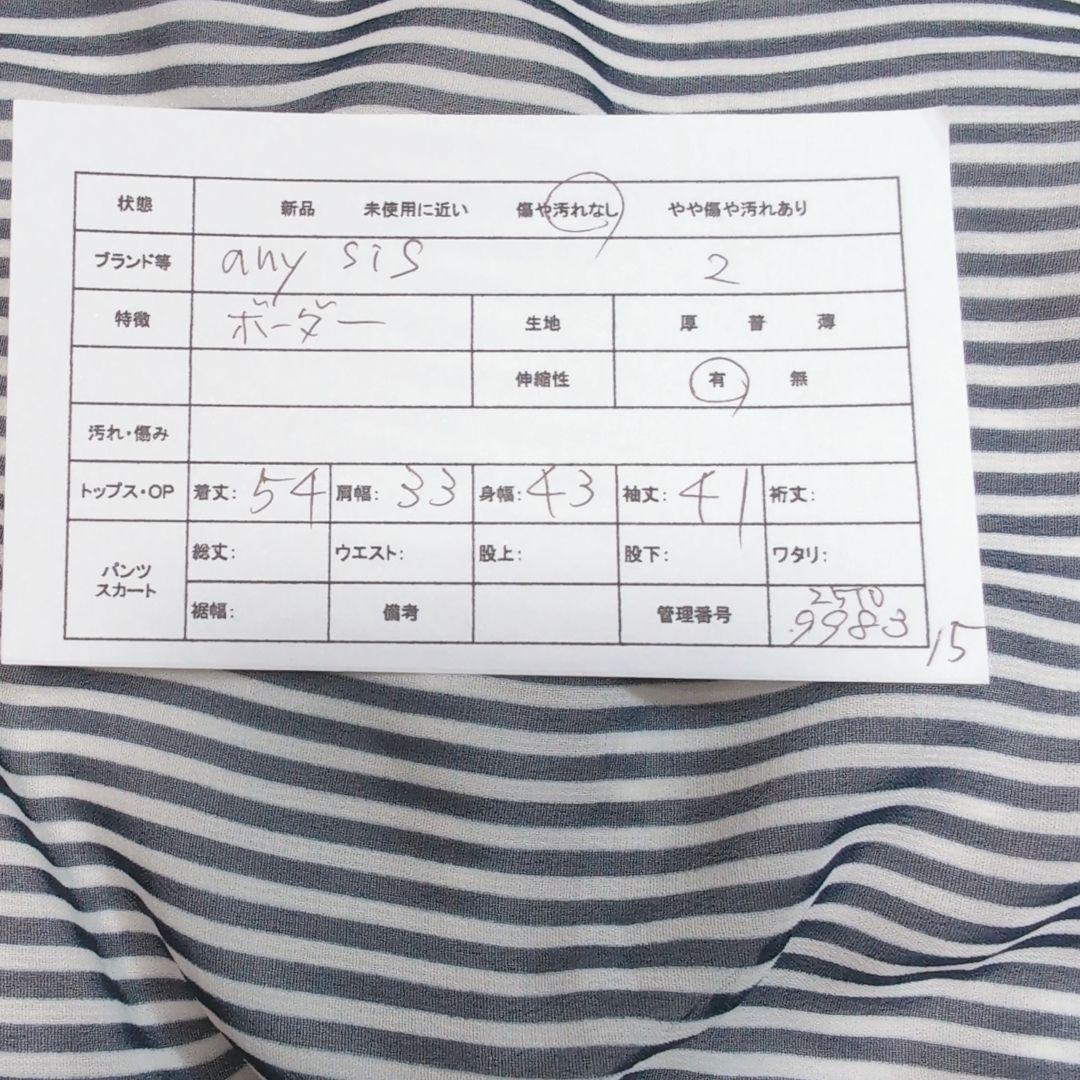 状態 新品 未使用に近い 傷や汚れなし やや傷や汚れあり
ブランド等 any sis 2
特徴 ボーダー 生地 厚 普 薄
伸縮性 有 無
汚れ・傷み
トップス・OP 着丈: 54 肩幅: 33 身幅: 43 袖丈: 41 裄丈:
パンツ スカート
総丈: ウエスト: 股上: 股下: ワタリ:
裾幅: 備考 管理番号
2570
9983
15